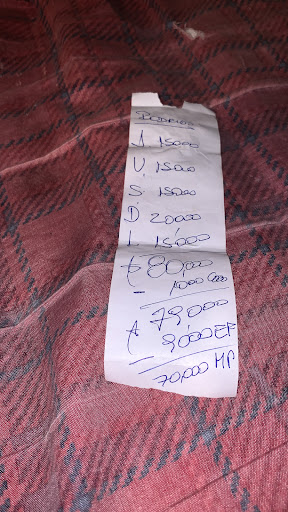 J 15000
V. 15000
S. 15000
D 20000
L. 15,000
80,000
- 1000
79,000
- 9,000 EF
70,000 MP